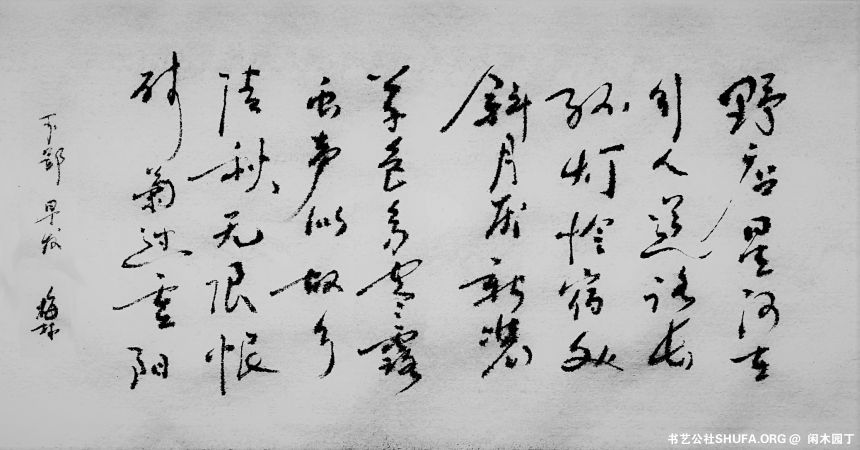 野店星河在
行人道路长
孤灯怜宿处
斜月厌新装
草色多寒露
虫声似故乡
清秋无限恨
残菊过重阳
早发
书艺公社SHUFA.ORG @ 闲木园丁